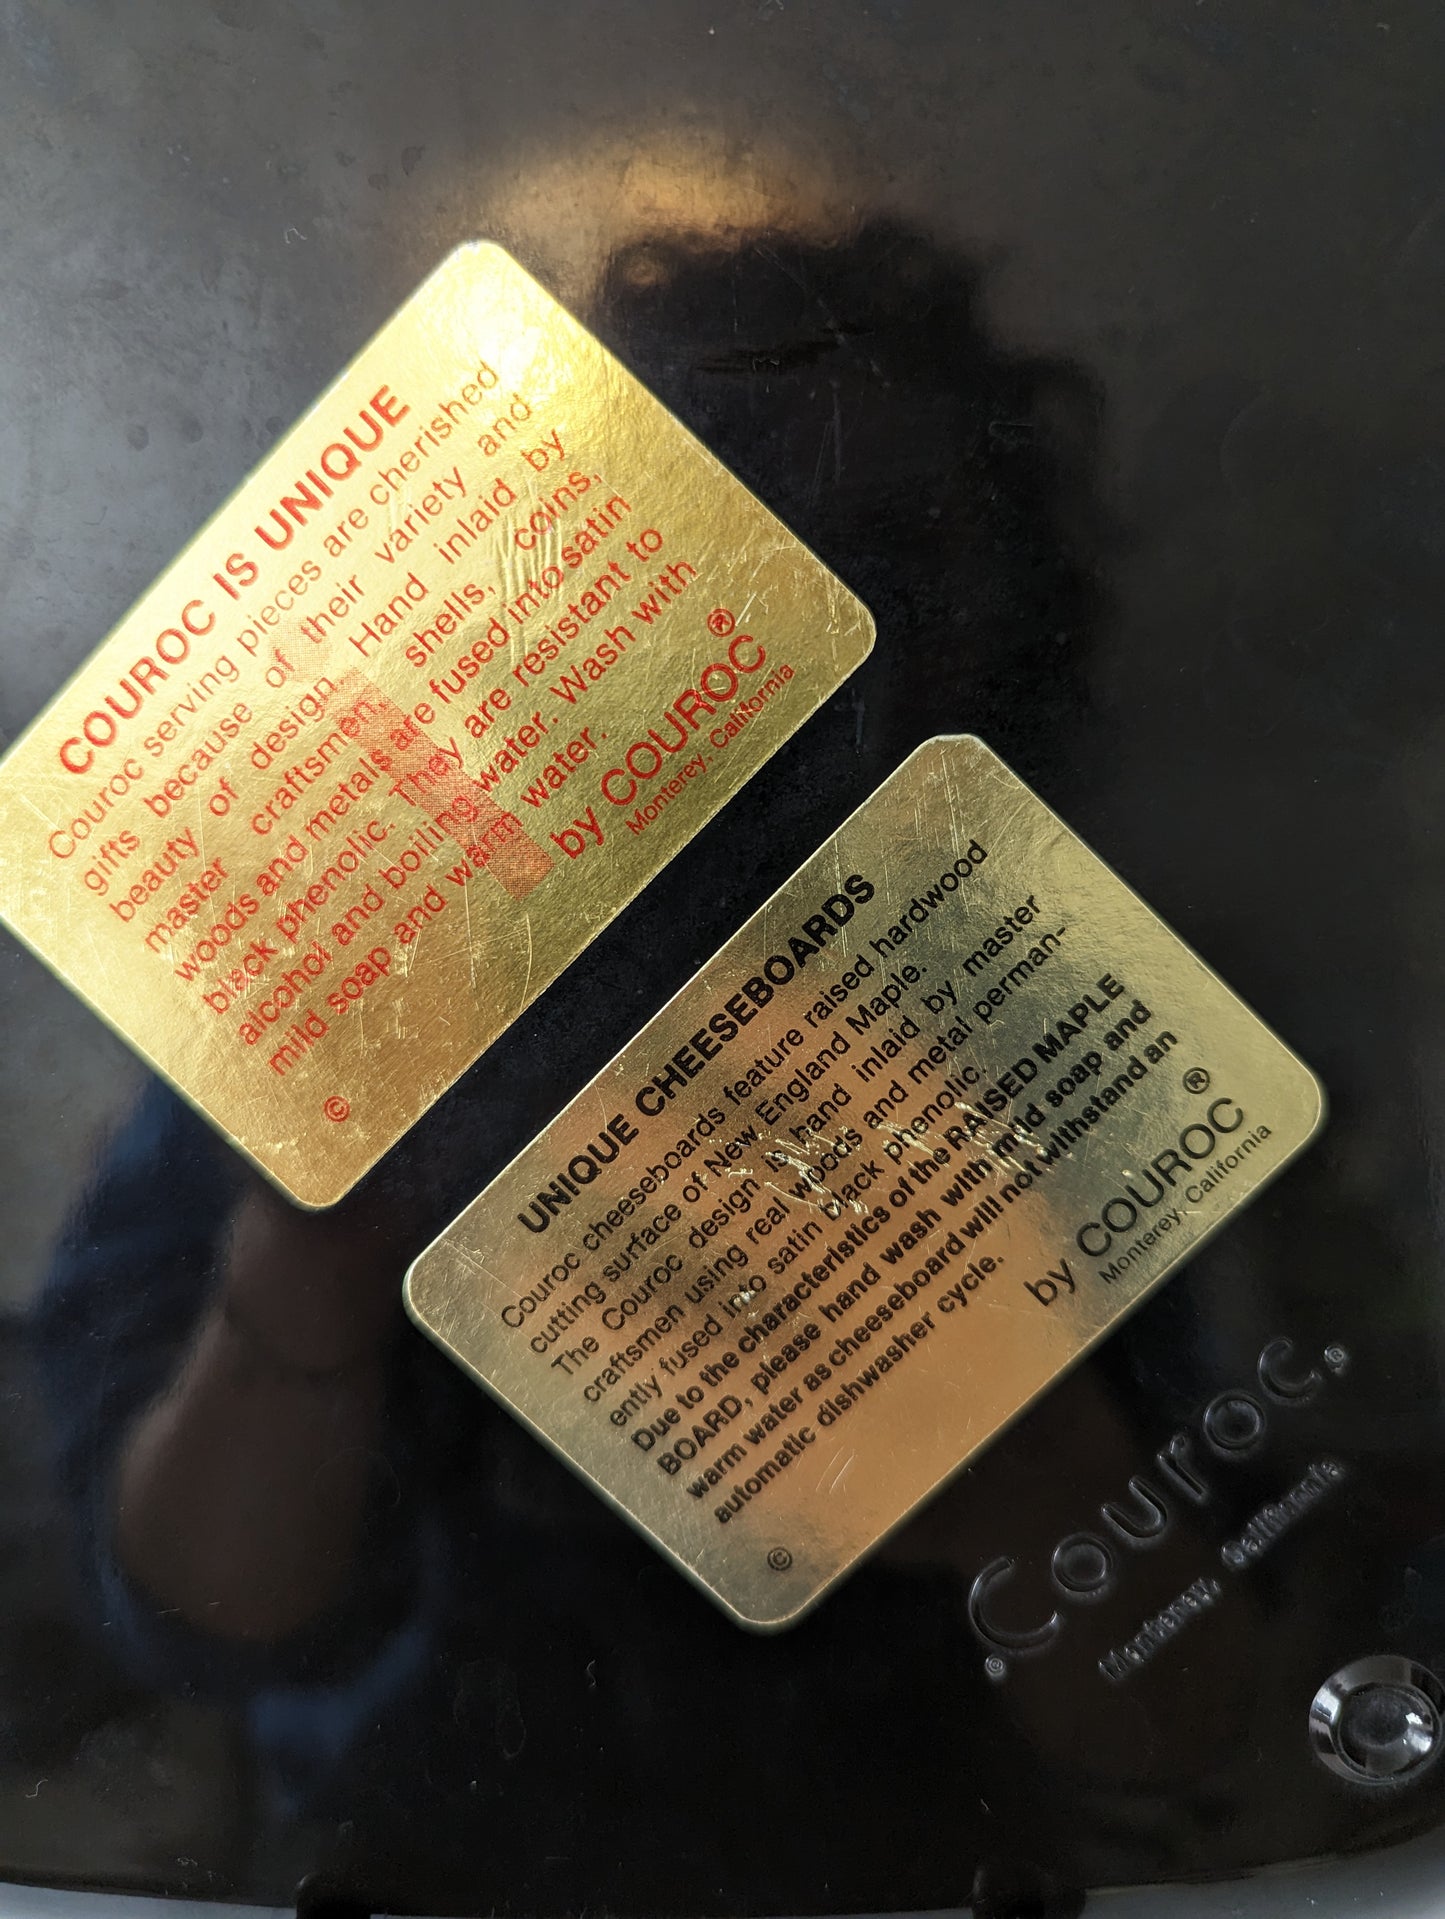 COUROC IS UNIQUE
Couroc serving pieces are cherished
gifts because of their variety and
beauty of design. Hand inlaid by
master craftsmen, shells, coins,
woods and metals are fused into satin
black phenolic. They are resistant to
alcohol and boiling water. Wash with
mild soap and warm water.
by COUROC®
Monterey, California
©
UNIQUE CHEESEBOARDS
Couroc cheeseboards feature raised hardwood
cutting surface of New England Maple.
The Couroc design is hand inlaid by master
craftsmen using real woods and metal perman-
ently fused into satin black phenolic.
Due to the characteristics of the RAISED MAPLE
BOARD, please hand wash with mild soap and
warm water as cheeseboard will not withstand an
automatic dishwasher cycle.
by COUROC®
Monterey, California
©
Couroc®
Monterey, California